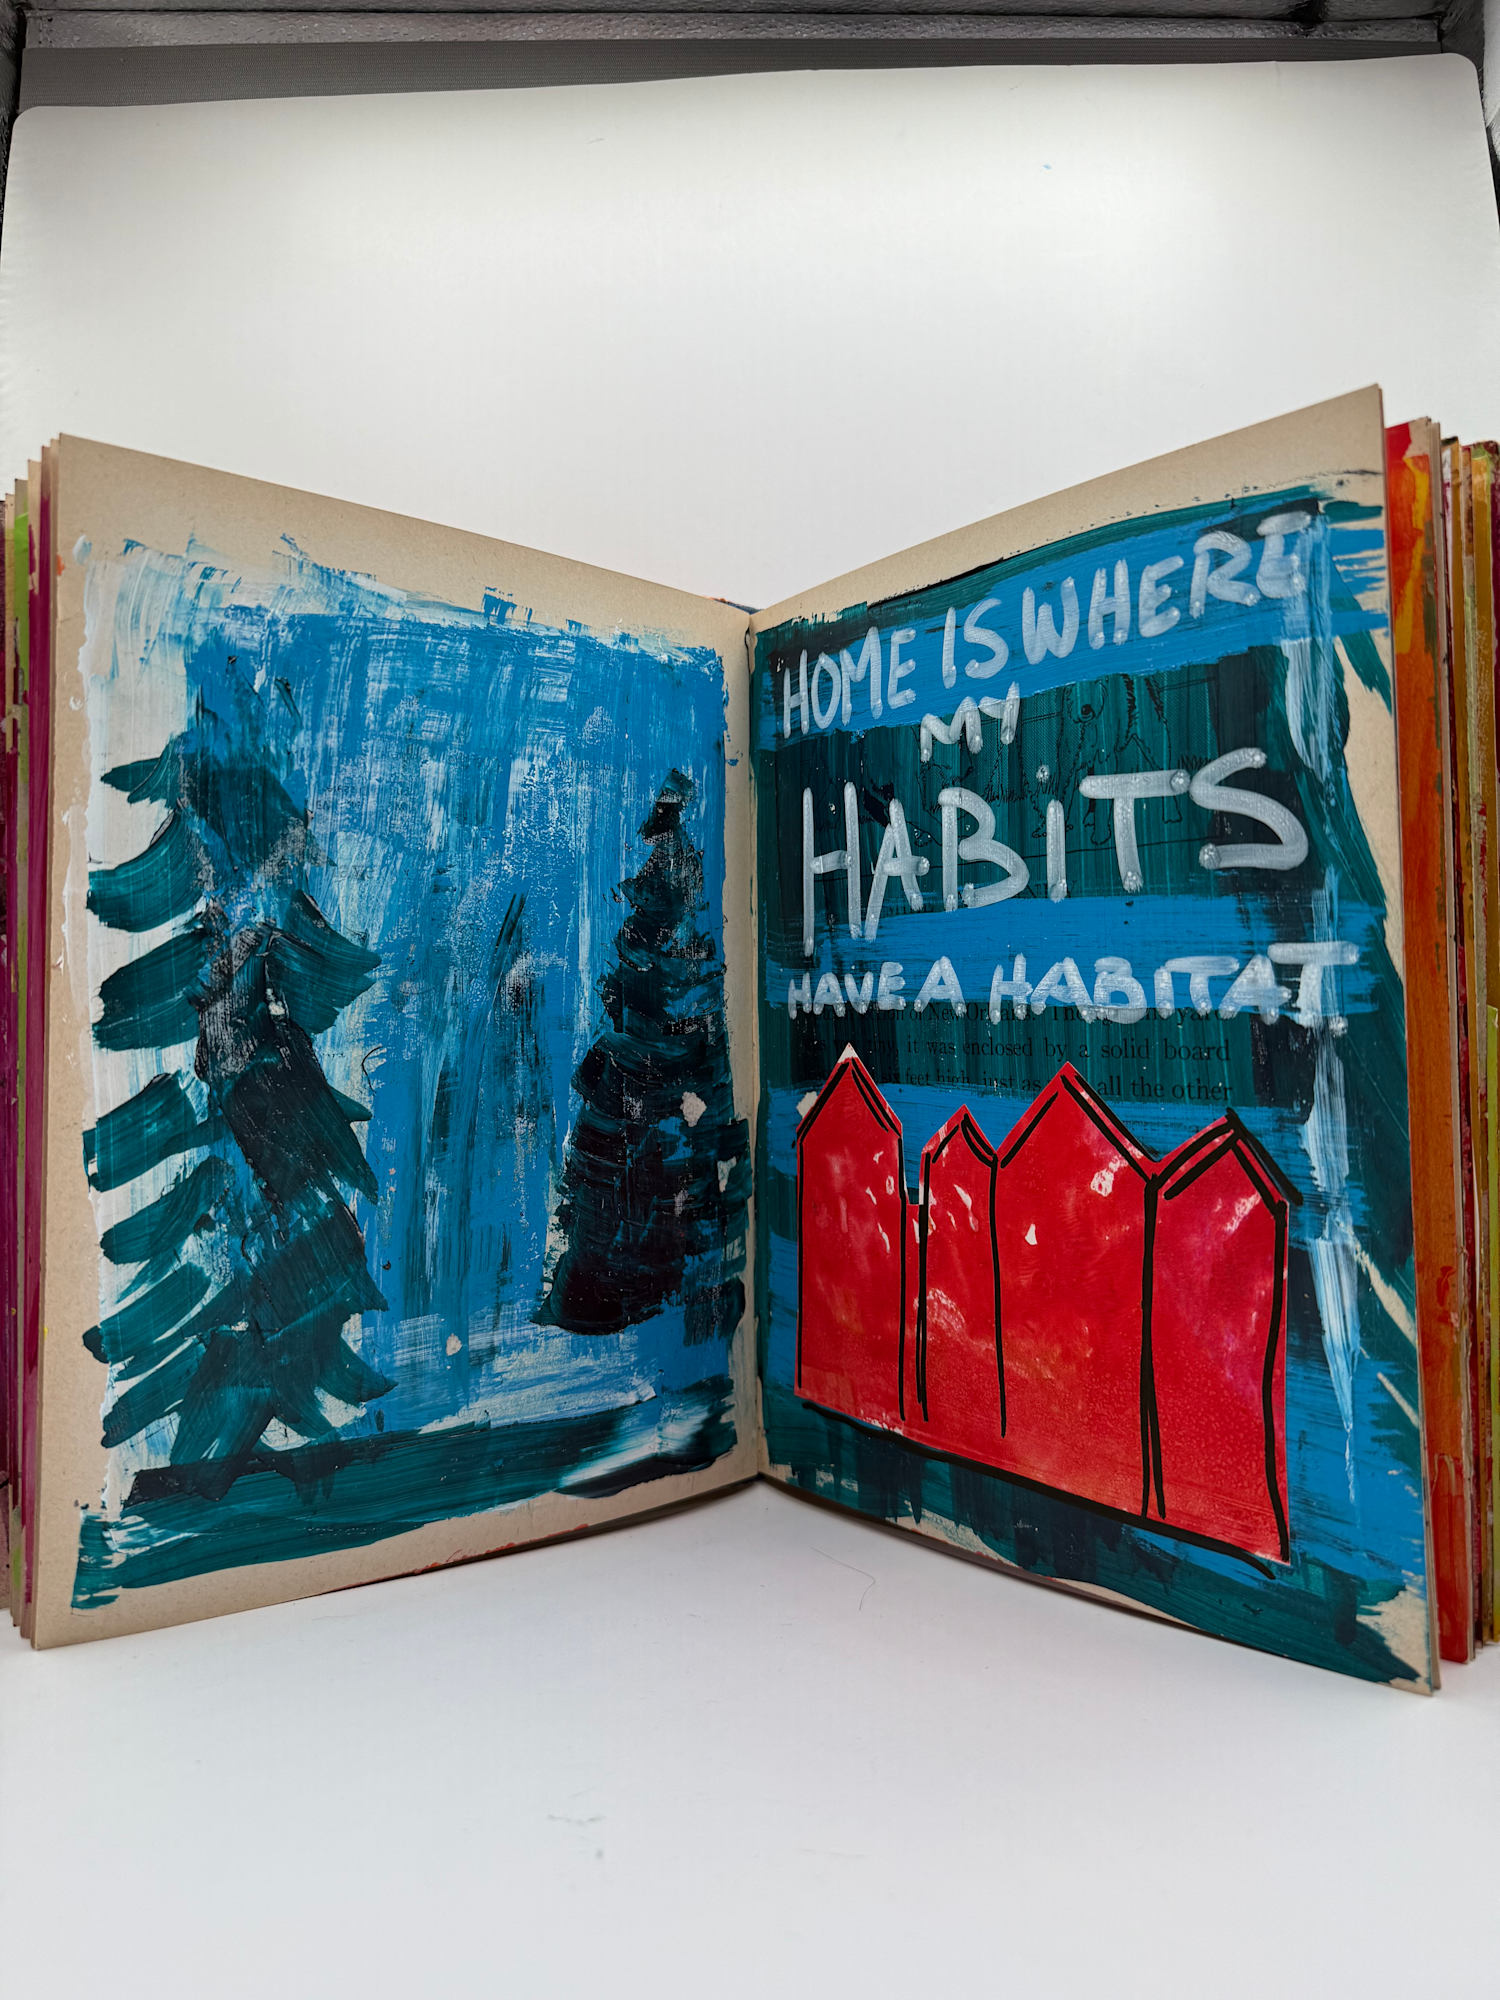 HOME IS WHERE
MY
HABITS
HAVE A HABITAT
of New Orleans. The yard
it was enclosed by a solid board
feet high, just as all the other